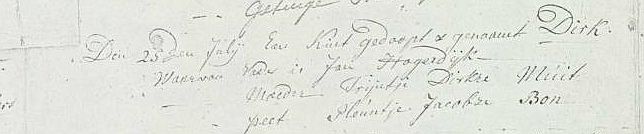 Getuige
Den 25 Den Julij Een Kint gedoopt & genaamt Dirk.
Waarvan Vader is Jan Hogerdijk
Moeder Trijntje Dirkze Muit
peet Pleuntje Jacobze Bon